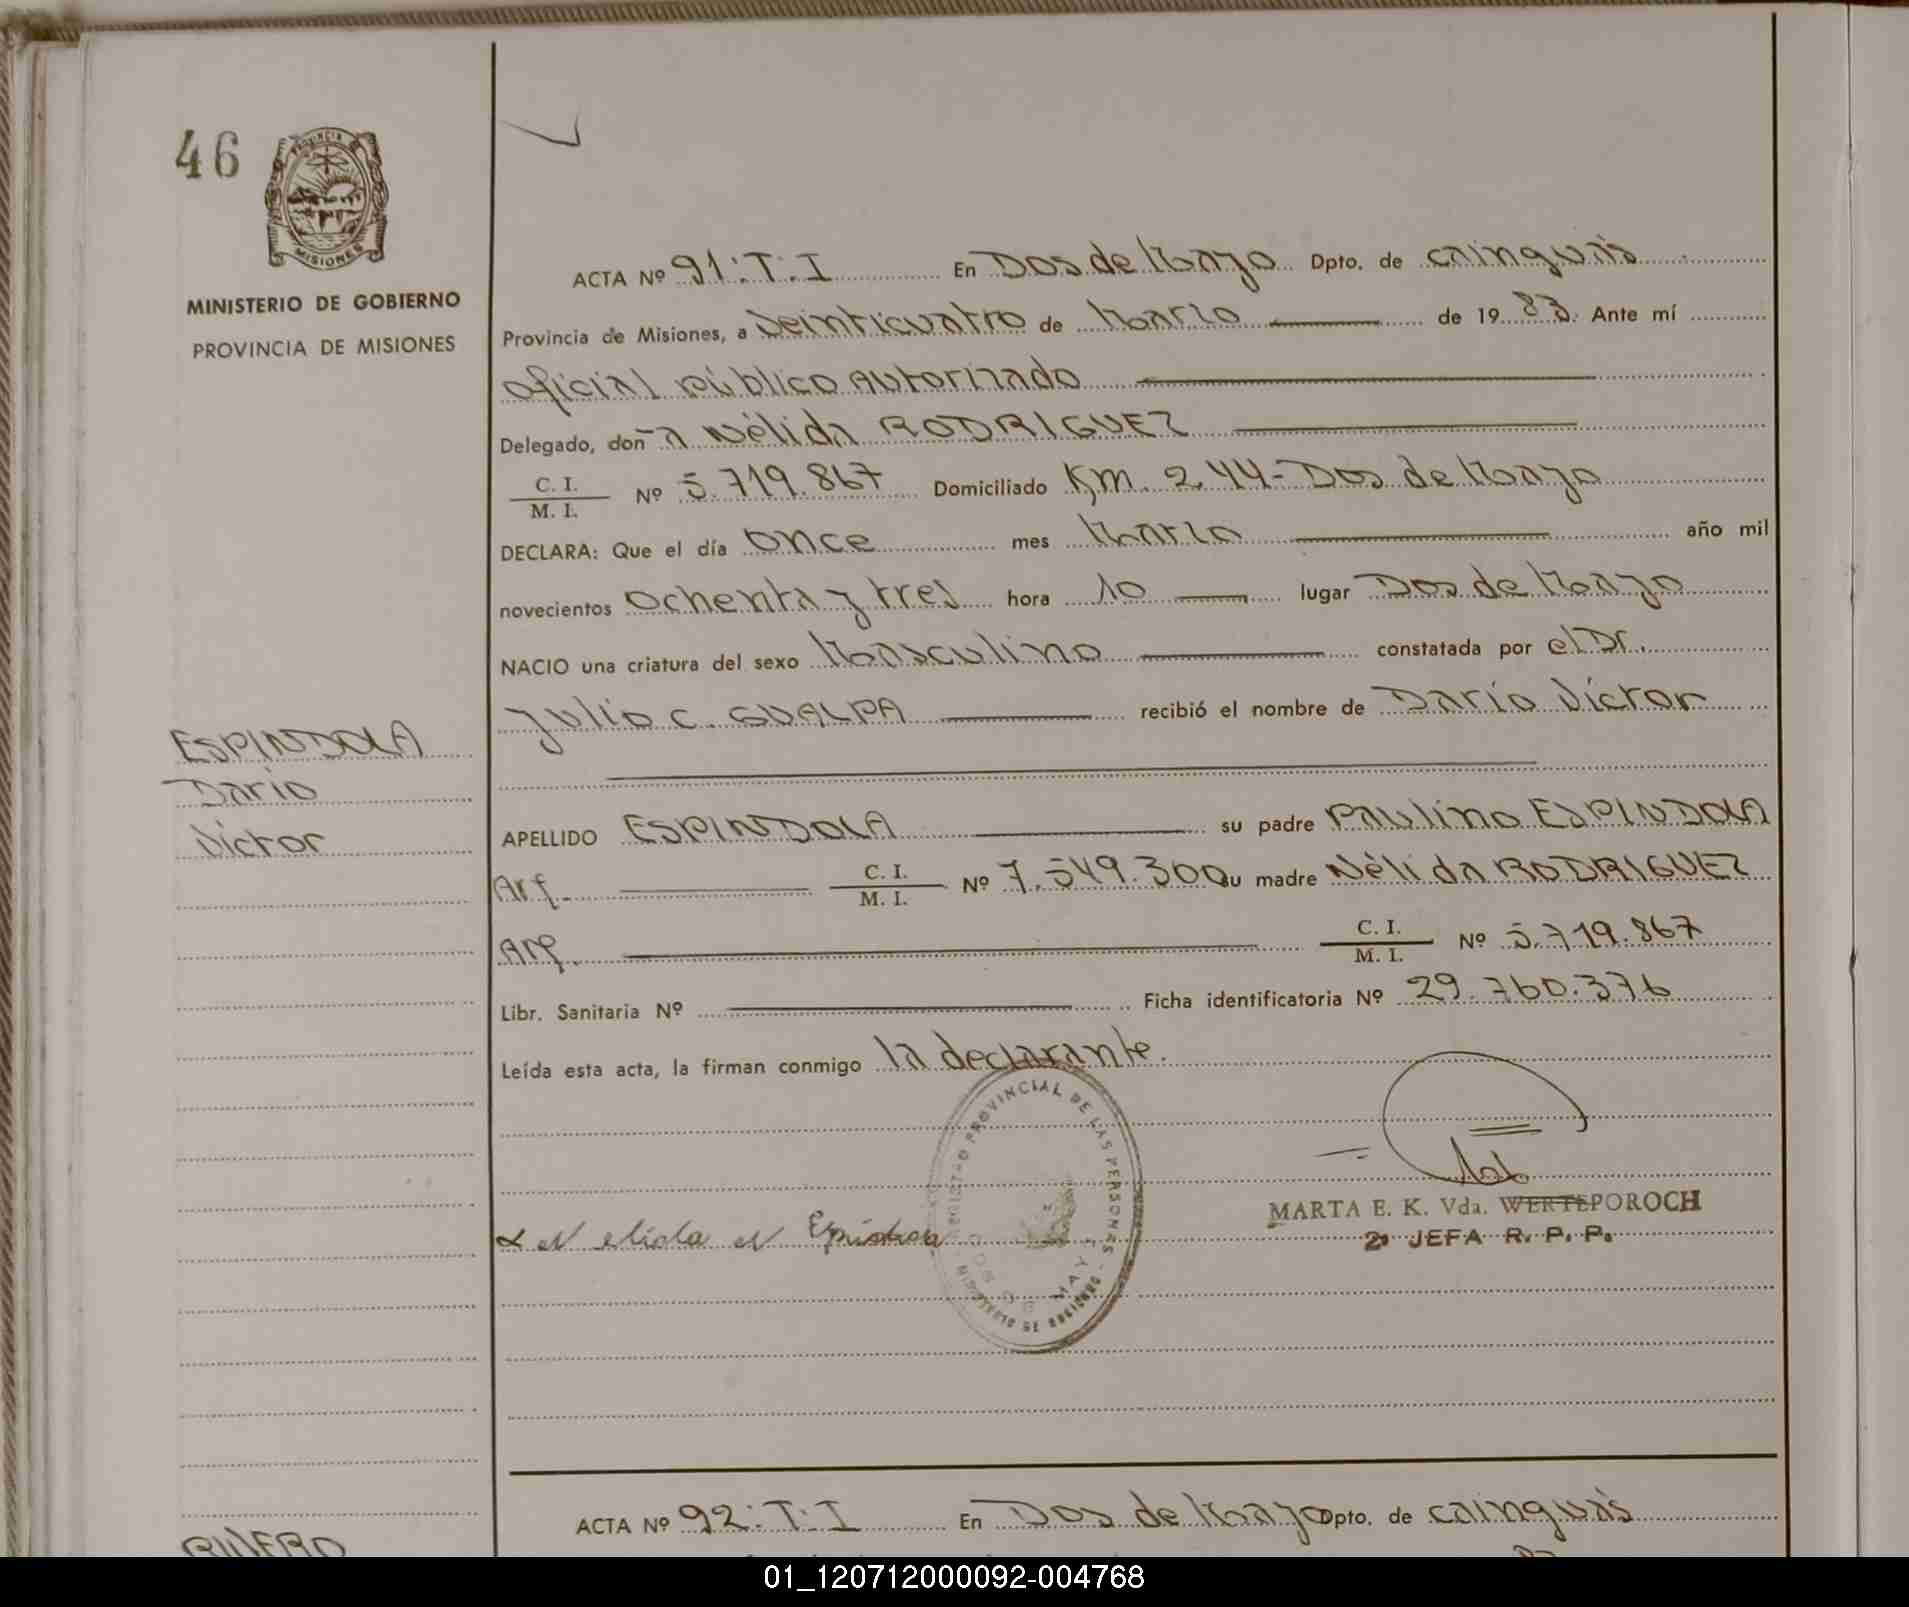 46
PROVINCIA
MISIONES
MINISTERIO DE GOBIERNO
PROVINCIA DE MISIONES
ACTA Nº 91:T:I En Dos de Mayo Dpto. de Cainguás
Provincia de Misiones, a Veinticuatro de Marzo de 1983. Ante mí
Oficial Público Autorizado
Delegado, don~a Nélida RODRIGUEZ
C. I.
M. I. Nº 5.719.867 Domiciliado Km. 244- Dos de Mayo
DECLARA: Que el día Once mes Marzo año mil
novecientos Ochenta y tres hora 10 lugar Dos de Mayo
NACIO una criatura del sexo Masculino constatada por el Dr.
Julio C. GUALPA recibió el nombre de Darío Víctor
ESPINDOLA
Darío
Víctor
APELLIDO ESPINDOLA su padre Paulino ESPINDOLA
Arg. C. I.
M. I. Nº 7.549.300 su madre Nélida RODRIGUEZ
Arg. C. I.
M. I. Nº 5.719.867
Libr. Sanitaria Nº Ficha identificatoria Nº 29.760.376
Leída esta acta, la firman conmigo la declarante.
PROVINCIAL DE LAS PERSONAS
MARTA E. K. Vda. WERTEPOROCH
2ª JEFA R. P. P.
ACTA Nº 92:T:I En Dos de Mayo Dpto. de Cainguás
01_120712000092-004768